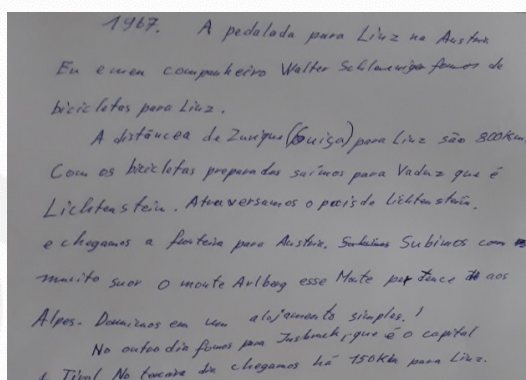 1967. A pedalada para Linz na Austria
Eu e meu companheiro Walter fomos de
bicicletas para Linz.
A distâncea de Zurique (Suiça) para Linz são 800Km.
Com os bicicletas preparadas saímos para Vaduz que é
Lichtenstein. Atraversamos o pais de Lichtenstein.
e chegamos a fronteira para Austria. Subimos com
muito suor o monte Arlberg esse Monte pertence aos
Alpes. Dormimos em um alojamento simples. !
No outro dia fomos para Insbruck, que é o capital
Tirol. No terceiro dia chegamos há 150Km para Linz.